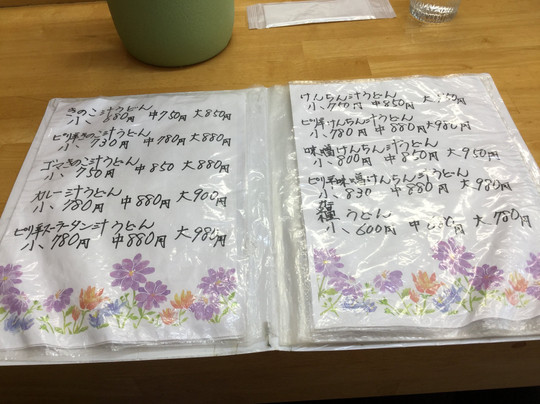 きのこ汁うどん
小、680円 中750円 大850円
ピリ辛きのこ汁うどん
小、730円 中780円 大880円
ゴマきのこ汁うどん
小、750円 中850 大880円
カレー汁うどん
小、780円 中880円 大900円
ピリ辛スーラータン汁うどん
小、780円 中880円 大980円
けんちん汁うどん
小、750円 中850円 大
ピリ辛けんちん汁うどん
小、780円 中880円 大980円
味噌けんちん汁うどん
小、800円 中850円 大950円
ピリ辛味噌けんちん汁うどん
小、830 中880円 大980円
うどん
小、600円 中 円 大780円